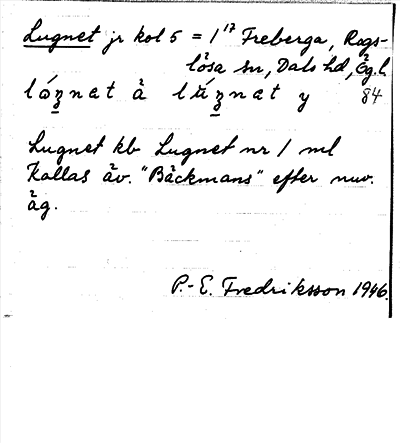 Lugnet jr kol 5 = 1¹⁷ Freberga, Rogs-
lösa sn, Dals hd, Ög. l.
84
Lugnet kb Lugnet nr 1 ml
Kallas äv. "Bäckmans" efter nuv.
äg.
P.-E. Fredriksson 1946.